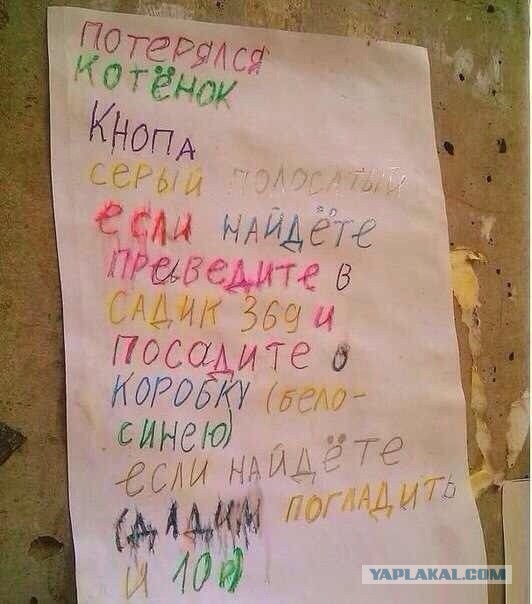 ПОТЕРЯЛСЯ
КОТЁНОК
КНОПА
СЕРЫЙ ПОЛОСАТЫЙ
если НАЙДЁТЕ
ПРЕВЕДИТЕ В
САДИК 369 и
ПОСАДИТЕ В
КОРОБКУ (бело-
синею)
если НАЙДЁТЕ
ДАДИМ ПОГЛАДИТЬ
и 10р
YAPLAKAL.COM